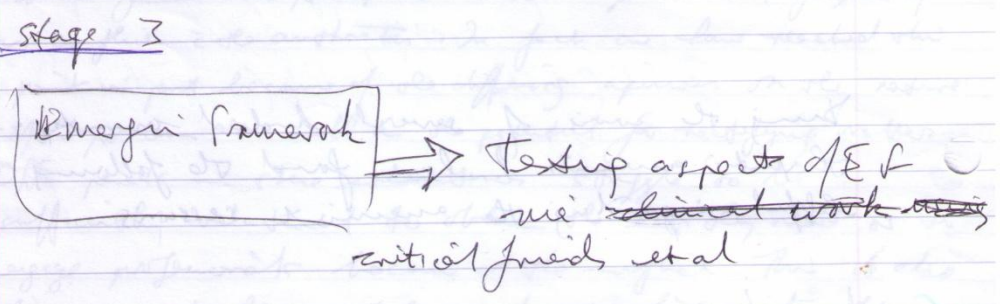 Stage 3
Emergin framework
Testing aspects of EF
via clinical work using
critical friends et al